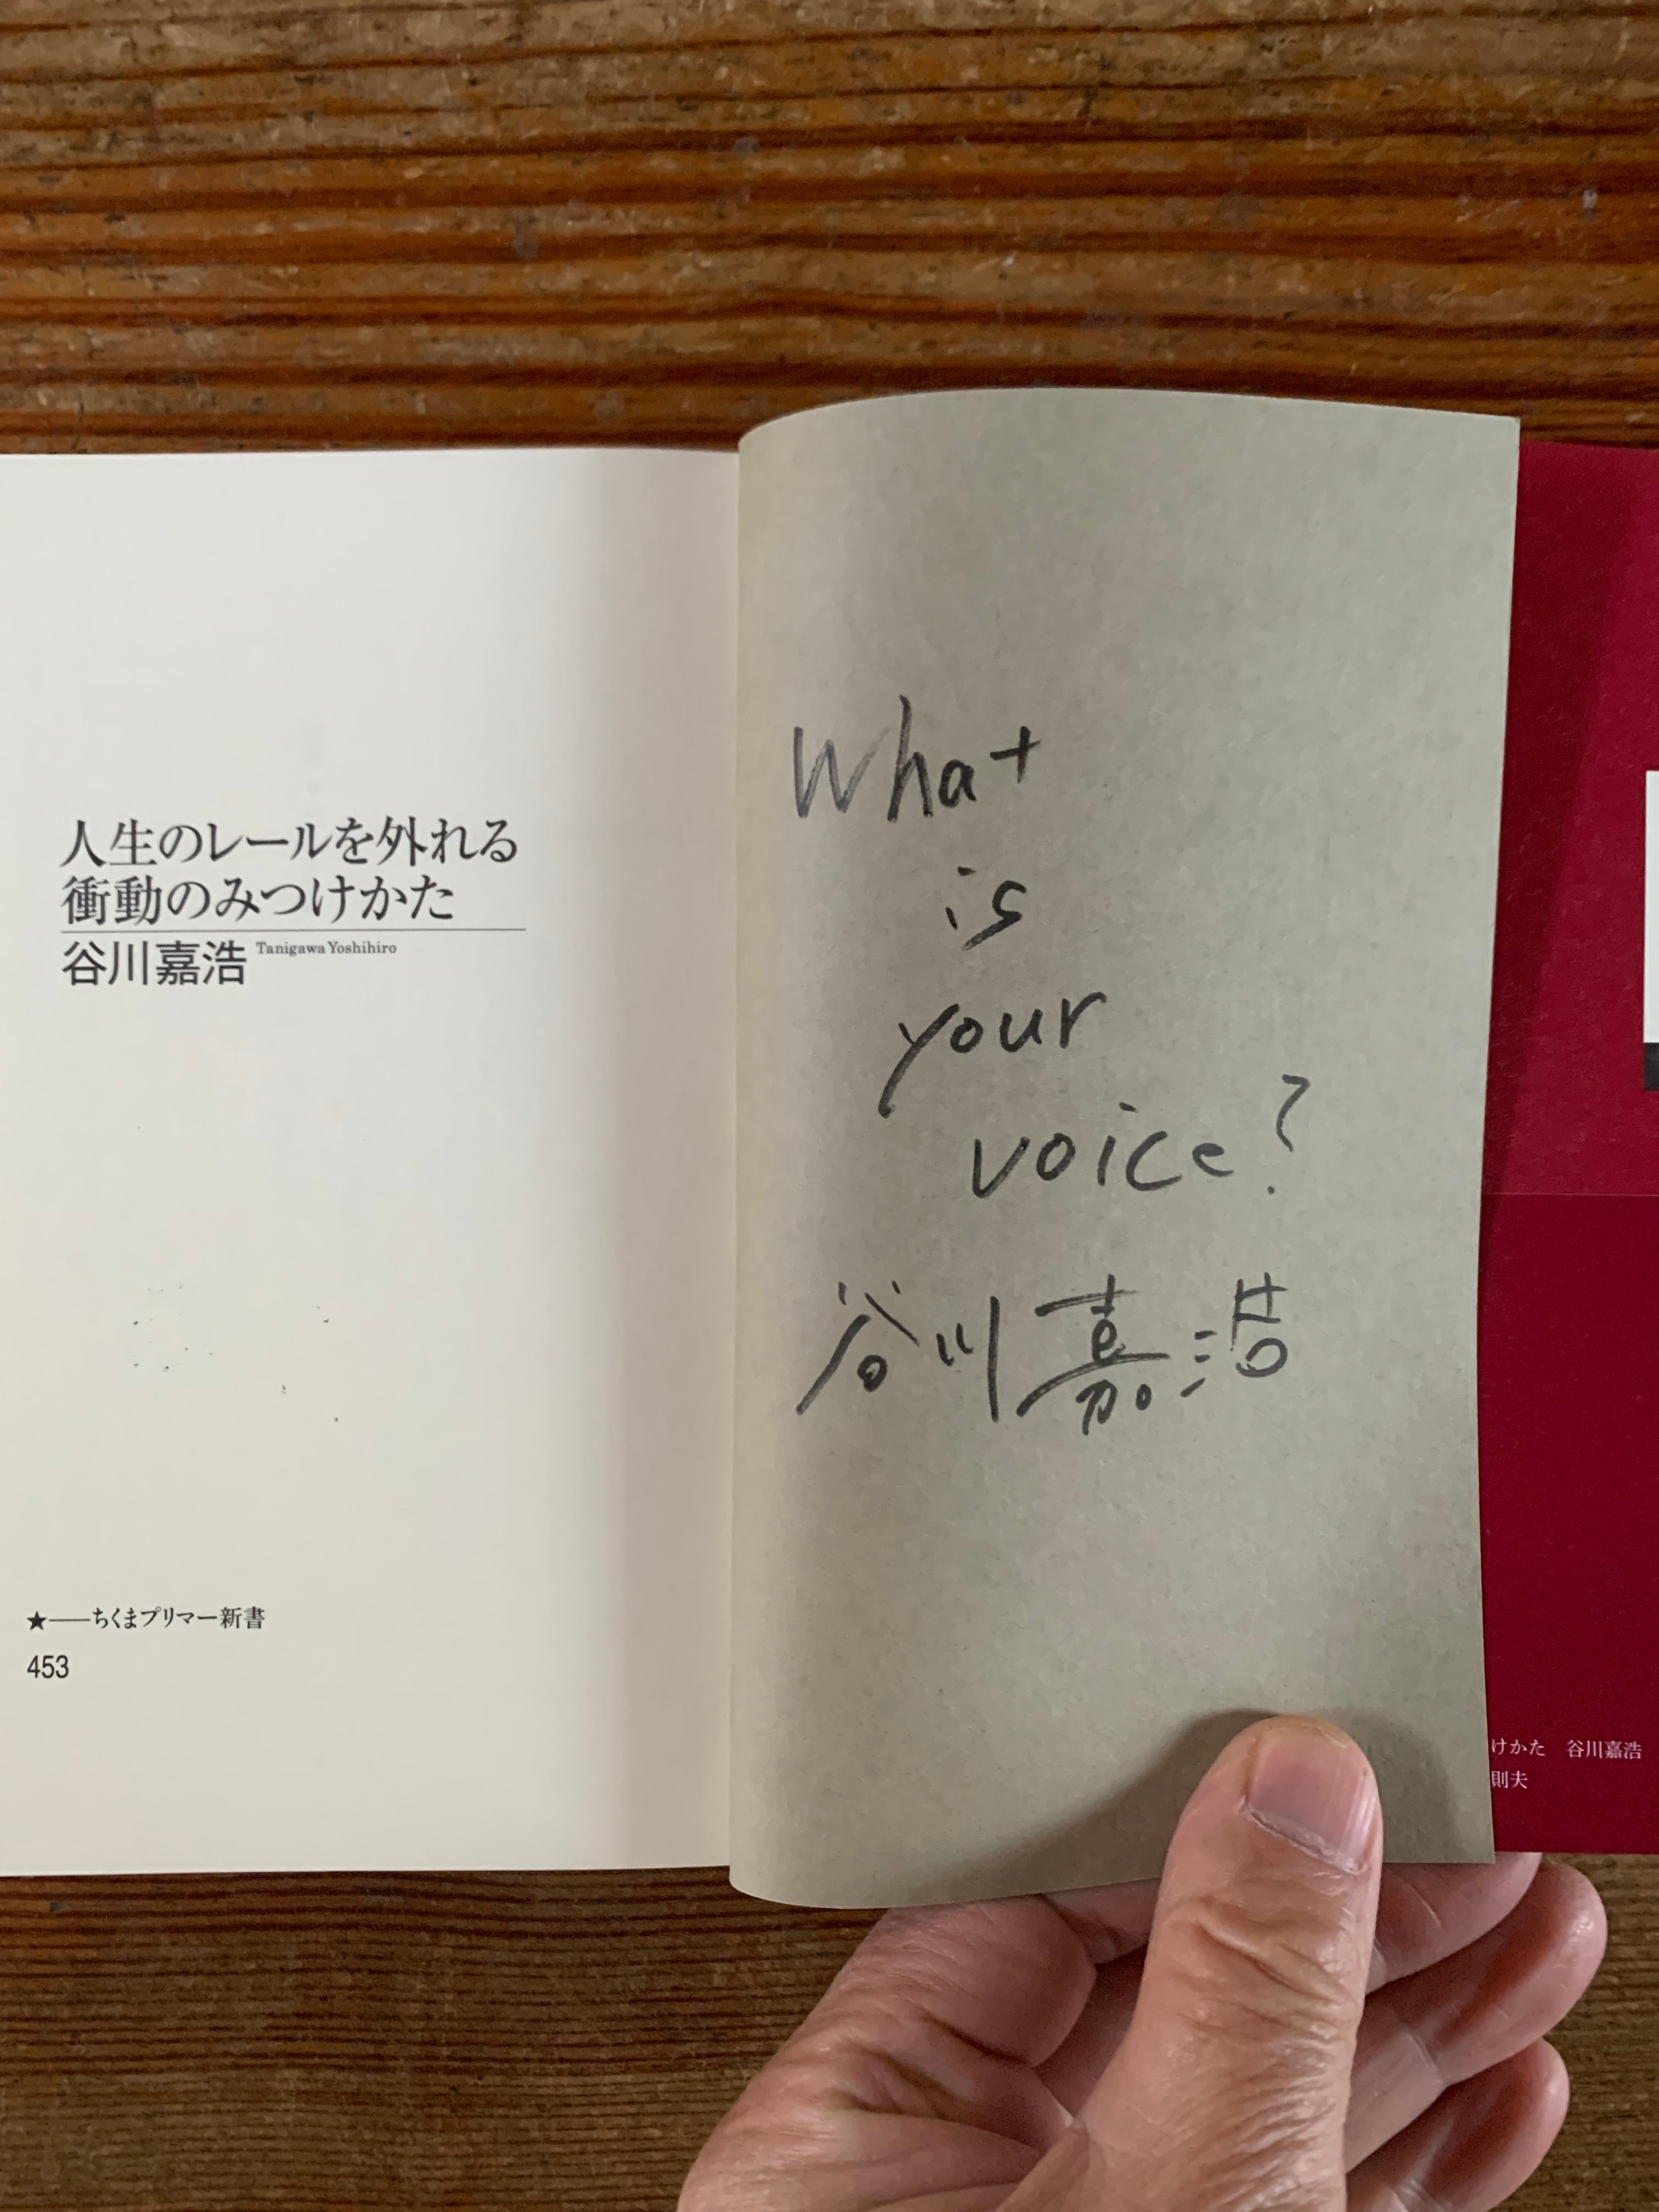 人生のレールを外れる
衝動のみつけかた
谷川嘉浩 Tanigawa Yoshihiro
★——ちくまプリマー新書
453
What
is
your
voice?
谷川嘉浩
けかた 谷川嘉浩
則夫